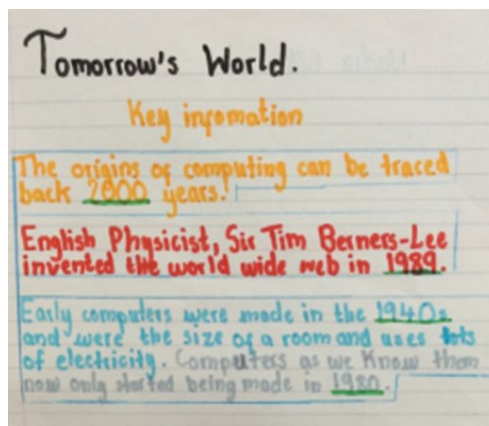 Tomorrow's World.
Key infomation
The origins of computing can be traced
back 2000 years!
English Physicist, Sir Tim Berners-Lee
invented the world wide web in 1989.
Early computers were made in the 1940s
and were the size of a room and uses lots
of electricity. Computers as we know them
now only started being made in 1980.